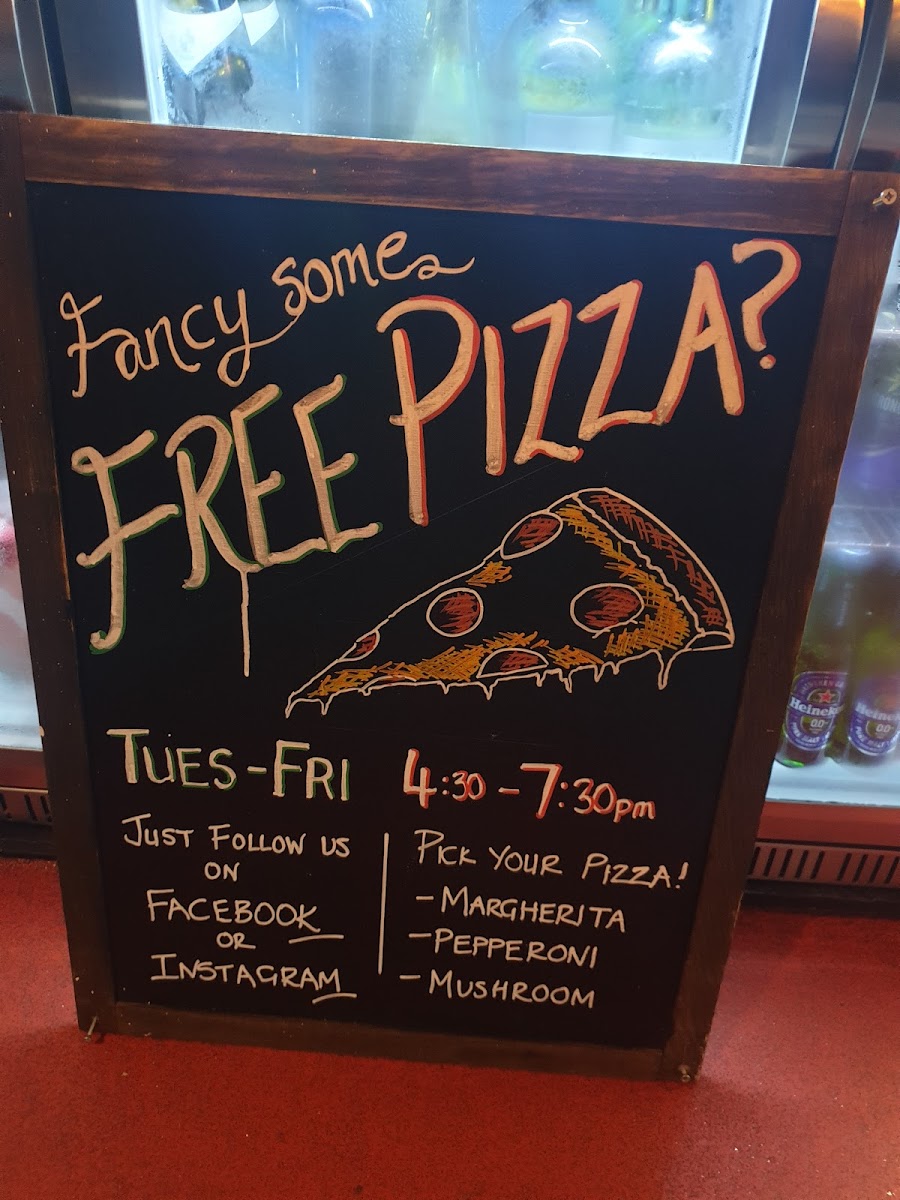 Fancy some
FREE PIZZA?
TUES-FRI 4:30-7:30pm
JUST FOLLOW US
ON
FACEBOOK
OR
INSTAGRAM
PICK YOUR PIZZA!
-MARGHERITA
-PEPPERONI
-MUSHROOM
Heineken
0.0
Heineken
0.0